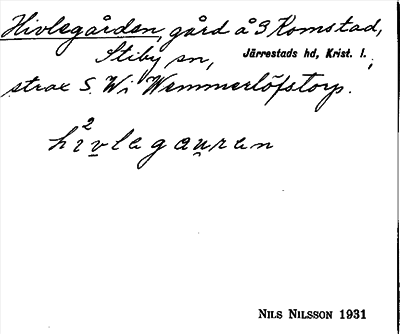 Hivlegården, gård å 3 Romstad,
Stiby sn, Järrestads hd, Krist. l.;
strax S. W. i Wemmerlöfstorp.
hi²vlegauren
NILS NILSSON 1931